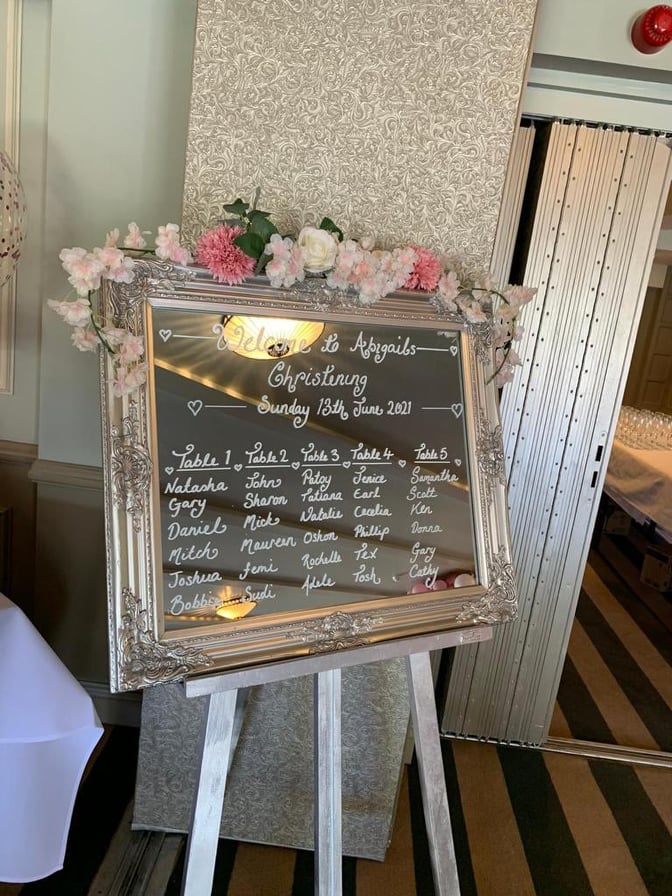 Welcome to Abigails
Christening
Sunday 13th June 2021
Table 1 Table 2 Table 3 Table 4 Table 5
Natasha John Patsy Jenice Samantha
Gary Sharon Tatiana Earl Scott
Daniel Mick Natalie Cecelia Ken
Mitch Maureen Oshon Phillip Donna
Joshua Femi Rochelle Tex Gary
Sudi Adele Tosh Cathy